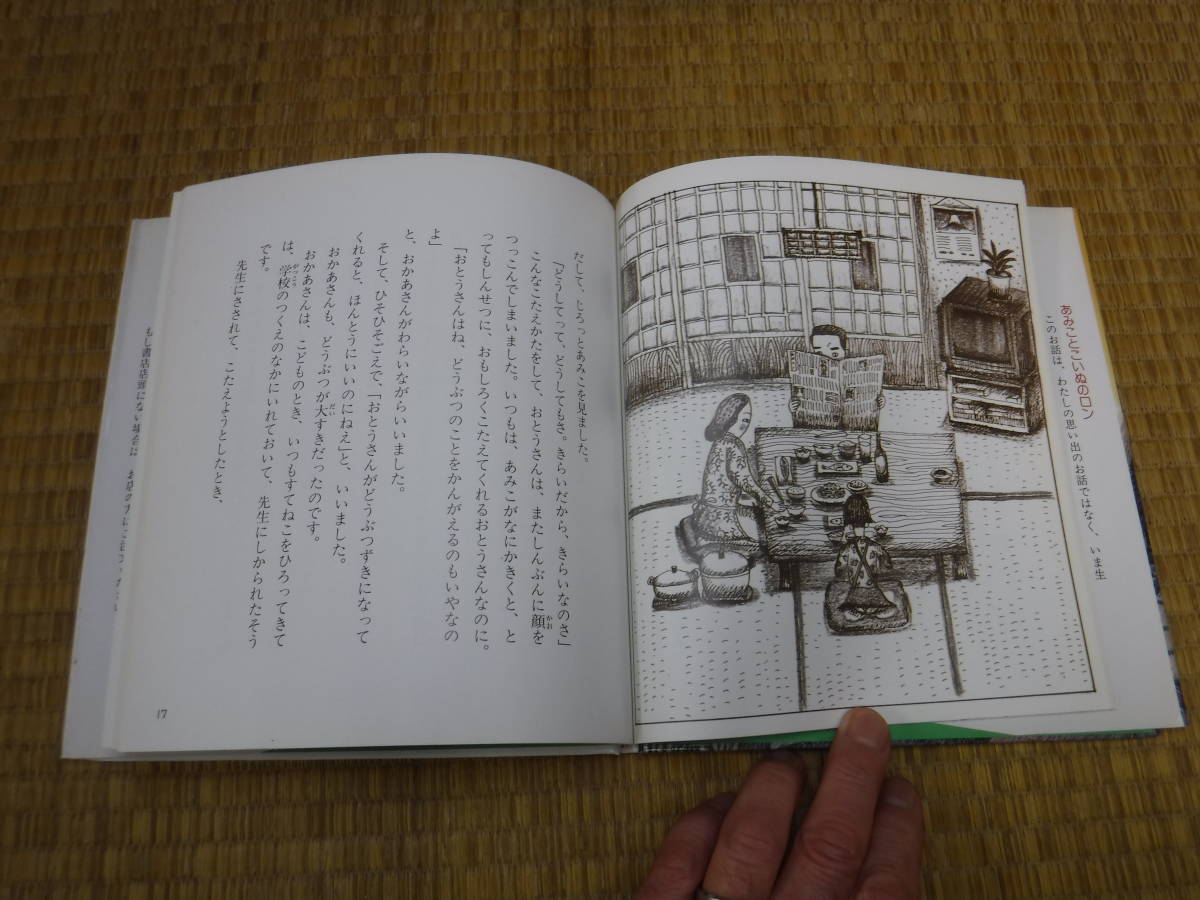 だして、じろっとあみこを見ました。
「どうしてって、どうしてもさ。きらいだから、きらいなのさ」
こんなこたえかたをして、おとうさんは、またしんぶんに顔を
かお
つっこんでしまいました。いつもは、あみこがなにかきくと、と
ってもしんせつに、おもしろくこたえてくれるおとうさんなのに。
「おとうさんはね、どうぶつのことをかんがえるのもいやなの
よ」
と、おかあさんがわらいながらいいました。
そして、ひそひそごえで、「おとうさんがどうぶつずきになって
くれると、ほんとうにいいのにねえ」と、いいました。
おかあさんも、どうぶつが大すきだったのです。
だい
おかあさんは、こどものとき、いつもすてねこをひろってきて
は、学校のつくえのなかにいれておいて、先生にしかられたそう
がっこう
です。
先生にさされて、こたえようとしたとき、
17
あみことこいぬのロン
このお話は、わたしの思い出のお話ではなく、いま生
もし書店店頭にない場合は